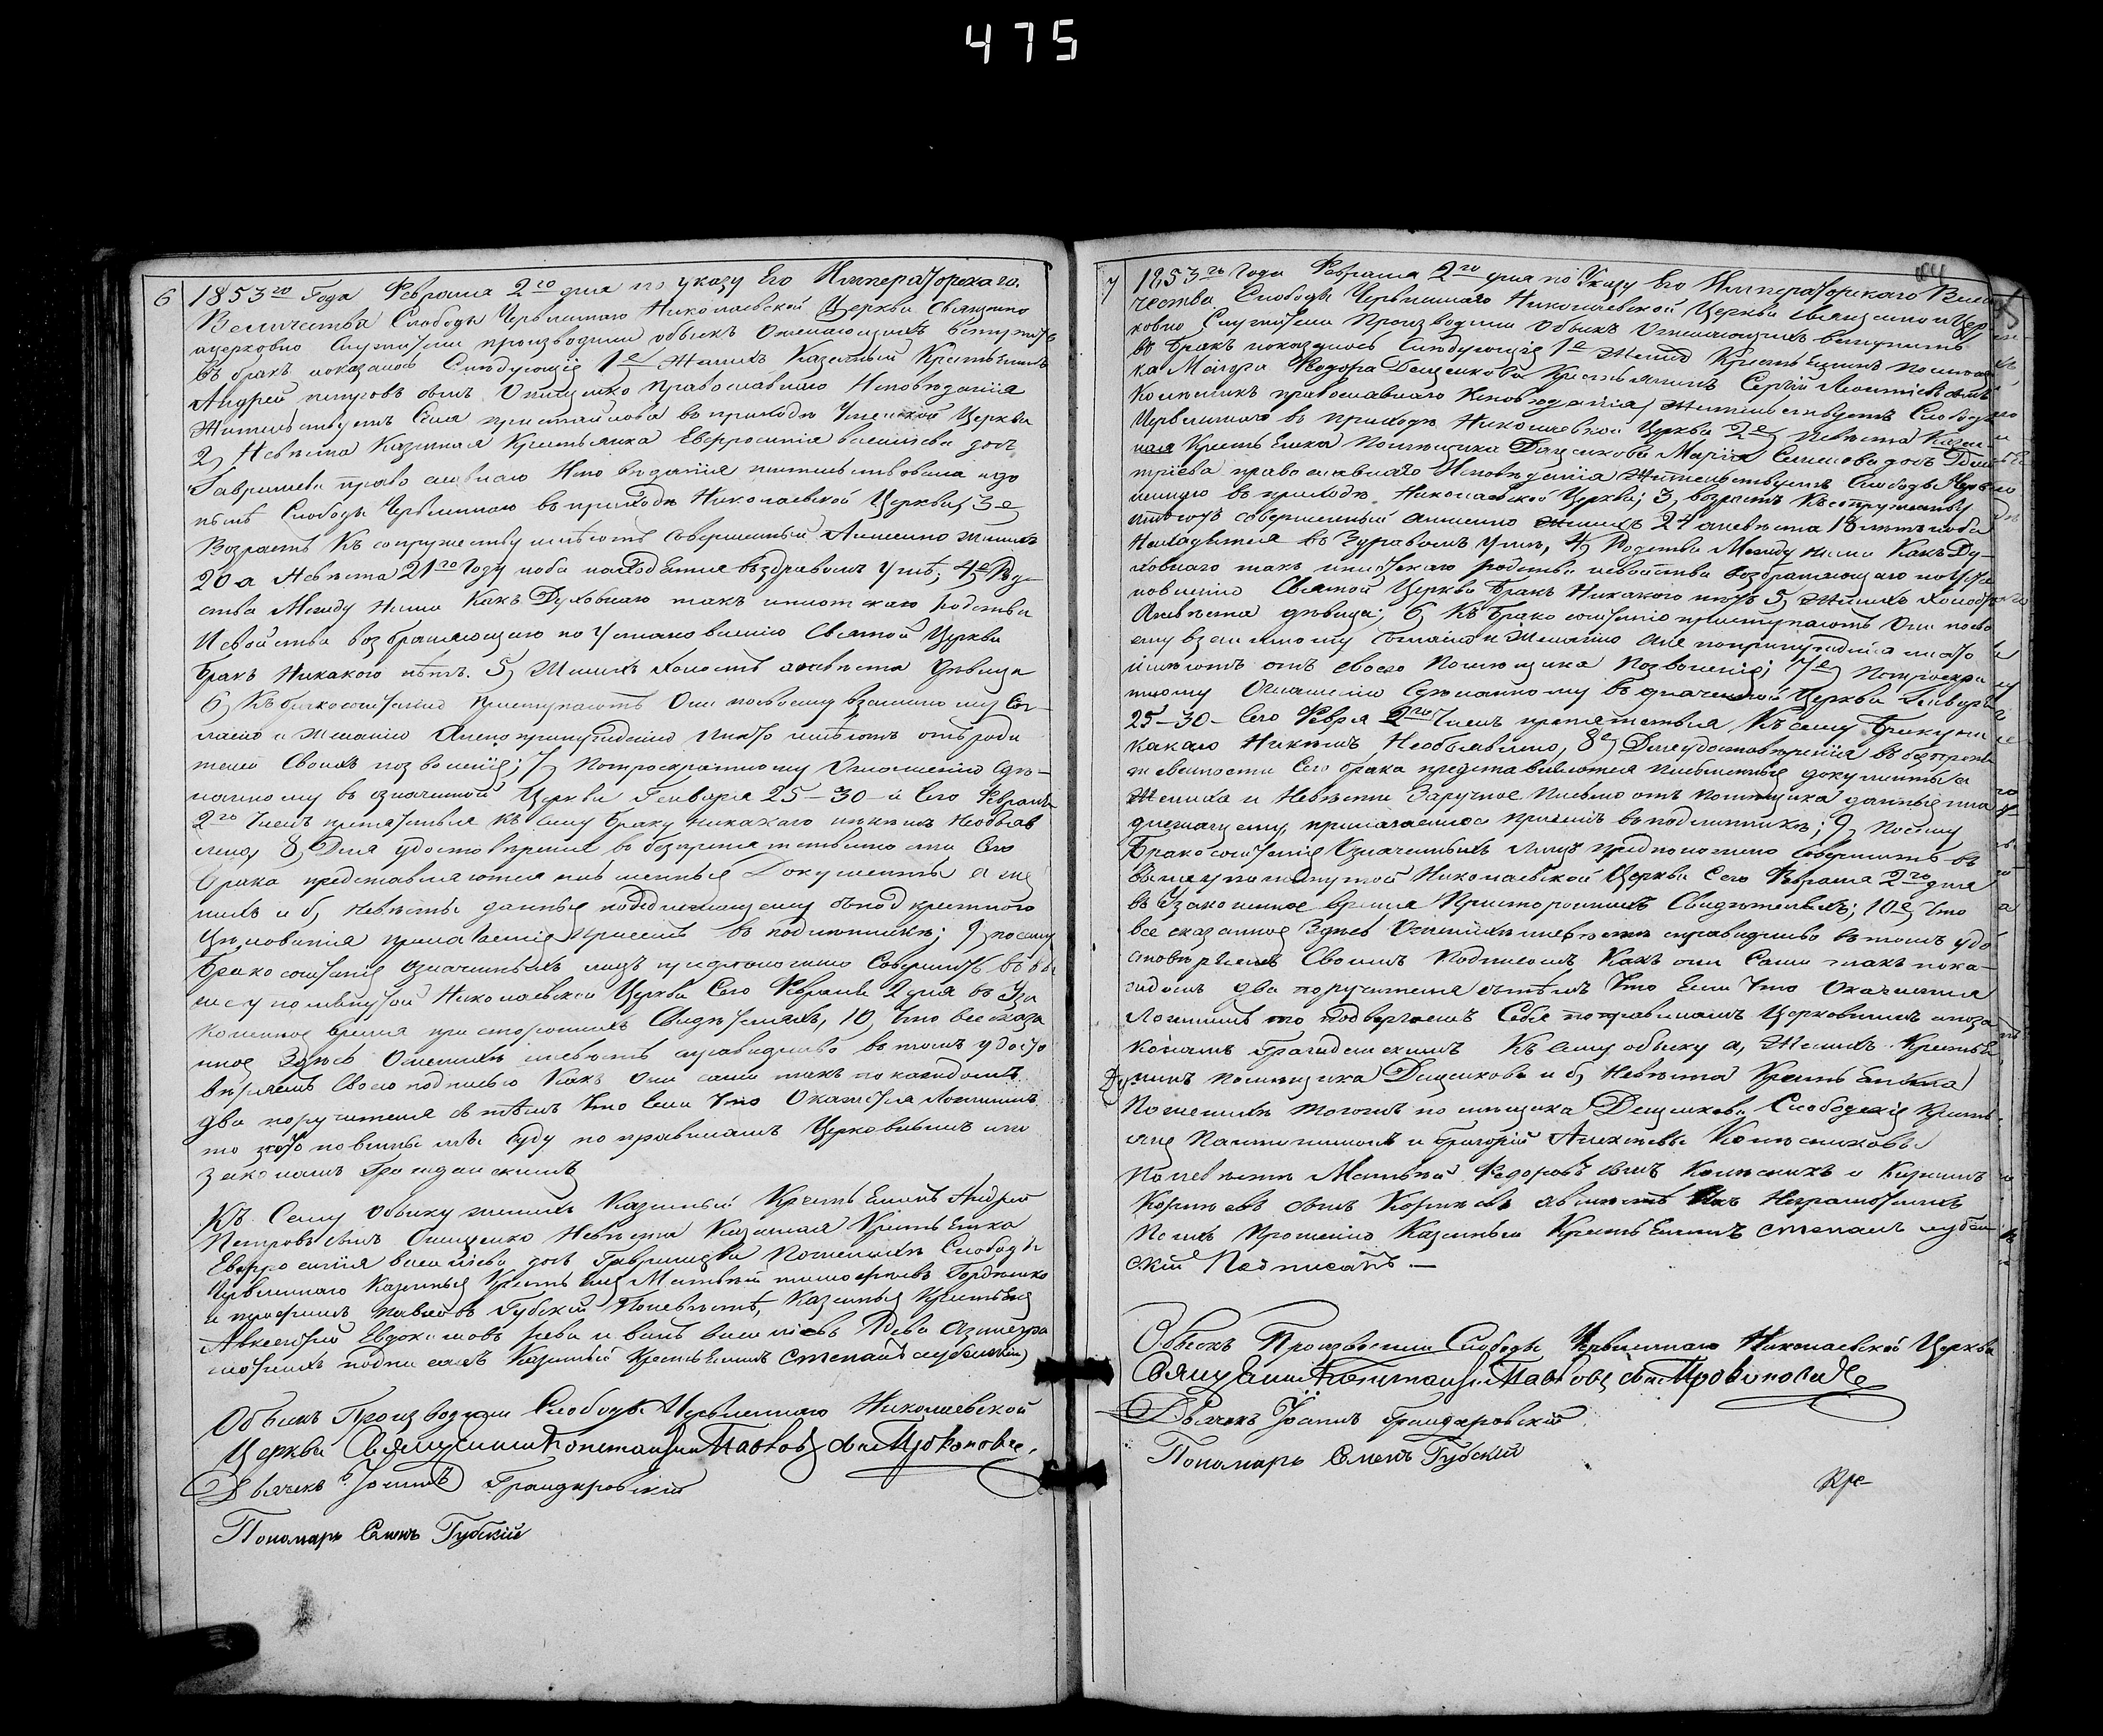 475
6
1853го Года Февраля 2го дня по указу Его Императорскаго
Величества Слободы Червленнаго Николаевской Церкви Священно
ицерковно Служители производили обыскъ Ожелающихъ вступить
въ бракъ показалось Слѣдующіе 1е Женихъ Казенный Крестьянинъ
Андрей петровъ сынъ Онищенко православнаго Исповѣданія
Жительствуетъ Села в приходѣ Успенской Церкви
2, Невѣста Казенная Крестьянка Евфросинія василіева дочь
Гаврищева право славнаго Испо вѣданія жительствовала до
нынѣ Слободы Червленнаго в приходѣ Николаевской Церкви, 3е,
Возрастъ Къ супружеству имѣютъ Совершенный Аименно женихъ
20 а Невѣста 21го Году иоба находятся въздравомъ умѣ; 4е, Род-
ства Между Ними Какъ Духовнаго такъ иплотскаго родства
Исвойства возбраняющаго по Установленію Святой Церкви
Бракъ Никакого нѣтъ. 5, Женихъ холостъ аневѣста дѣвица
6, Къ бракосочетанію приступаютъ Они посвоему взаимно му Сог-
ласію и Желанію Анепопринужденію Инато имѣютъ отъ роди
телей Своихъ позволеніе; 7, Потроекратному Оглашенію Сдѣ-
ланному въ означенной Церкви Генваря 25-30- и Сего Февраля
2го Числъ препятствія къ сему браку никакаго никѣмъ Необъяв
лено, 8, Для удостовѣренія въ безпрепятственно сти Сего
брака представляются письменные Документы а же
нихъ и б, невѣсты данные подѣдлежащему
Цѣлованія приполненіе въ подлинникѣ; 9, посему
Брако сочетаніе означенныхъ лицъ предположено Совершить въ вы
ше упомянутой Николаевской Церкви Сего Февраля 2 дня въ Уза
коненное время при стороннихъ Свидѣтеляхъ, 10, Что все сказа
нное Здѣсь Оженихѣ иневѣстѣ справедливо въ томъ удосто
вѣряемъ Своею подписью Какъ Они сами такъ по каждомъ
два поручителя съ тѣмъ Что Если Что Окажется ложнымъ
то повинны мы Суду по правиламъ Церковнымъ ипо
законамъ Гражданскимъ
Къ Сему Обыску женихъ Казенный Крестьянинъ Андрей
Петровъ сынъ Онищенко Невѣста Казенная Крестьянка
Евфросинія василіева дочь Гаврищева Поженихѣ Слободы
Червленнаго Казенные Крестьяне Матвѣй тимофѣевъ Гордѣенко
и трофимъ павловъ Губскій Поневѣстѣ, Казенные Крестьяне
Авксентій Евдокимовъ
подписалъ Казенный Крестьянинъ Степанъ
Обыскъ Производили Слободы Червленнаго Николаевской
Церкви Священникъ Константинъ Павловъ сынъ
Дьячекъ Іоаннъ
Пономарь Семенъ Губскій
7
1853го Года Февраля 2го дня по Указу Его Императорскаго Вели
чества Слободы Червленнаго Николаевской Церкви Священно ицер
ковно Служители Производили Обыскъ Ожелающихъ вступить
въ бракъ показалось Слѣдующіе 1е Женихъ Крестьянинъ помѣщи
ка Маіора Феодора Дещенкова Крестьянинъ Сергѣй сынъ
Колѣсникъ православнаго Исповѣданія, Жительствуетъ Слободы
Червленнаго в приходѣ Николаевской Церкви 2е, Невѣста Казен
ная Крестьянка Помѣщика Дещенкова Марія Семенова дочь Дми
тріева православнаго Исповѣданія Жительствуетъ Слободы Черв
леннаго въ приходѣ Николаевской Церкви; 3, возрастъ Късупружеству
имѣютъ совершенный аименно женихъ 21 аневѣста 18 лѣтъ иоба
Находятся въ Здравомъ умѣ, 4, Родства Между ними Какъ Ду-
ховнаго такъ иплотскаго родства исвойства возбраняющаго поУста
новленію Святой Церкви Бракъ Никакого нѣтъ 5, Женихъ холостъ
Аневѣста дѣвица; 6, Къ брако сочетанію приступаютъ Они посво
ему взаимному согласію и Желанію Ане попринужденію инато
имѣютъ отъ своего Помѣщика Позволеніе; 7е, Потроекра
тному Оглашенію Сдѣланному въ означенной Церкви Генваря
25-30- Сего Февраля 2го Числъ препятствія Къ сему браку ни
какаго Никѣмъ Необъявлено, 8е, Для удостовѣренія въ безпрепя
тственности Сего брака представляются письменные документы а
Жениха и Невѣсты Заручное Письмо отъ помѣщика данные на
длежащему, въ подлинникѣ; 9, Посему
Бракосочетаніе Означенныхъ Лицъ предположено Совершить въ
вышеупомянутой Николаевской Церкви Сего Февраля 2го дня
въ Узаконенное время Пристороннихъ Свидѣтеляхъ; 10е, Что
все сказанное Здѣсь Оженихѣ иневѣстѣ справедливо въ томъ удо
стовѣряемъ Своимъ Подписомъ Какъ они Сами такъ пока-
ждомъ два поручителя сътѣмъ Что Если Что Окажется
Ложнымъ то подвергаемъ Себя поправиламъ Церковнымъ ипоза
конамъ Гражданскимъ Къ Сему обыску а, Женихъ Крестья
нинъ помѣщика Дещенкова и б, Невѣста Крестьянка
Поженихѣ тогожъ помѣщика Дещенкова Слободскіе Кресть
яне Пантелимонъ и Григорій Алексѣевы Колѣсниковы
Поневѣстѣ Матвѣй Федоровъ сынъ Колѣсникъ и Кирилъ
сынъ Неграмотныхъ
По ихъ Прошенію Казенный Крестьянинъ Степанъ
скій Подписалъ.—
Обыскъ Производили Слободы Червленнаго Николаевской Церкви
Священникъ Константинъ Павловъ сынъ
Дьячекъ Іоаннъ
Пономарь Семенъ Губскій
Кре-